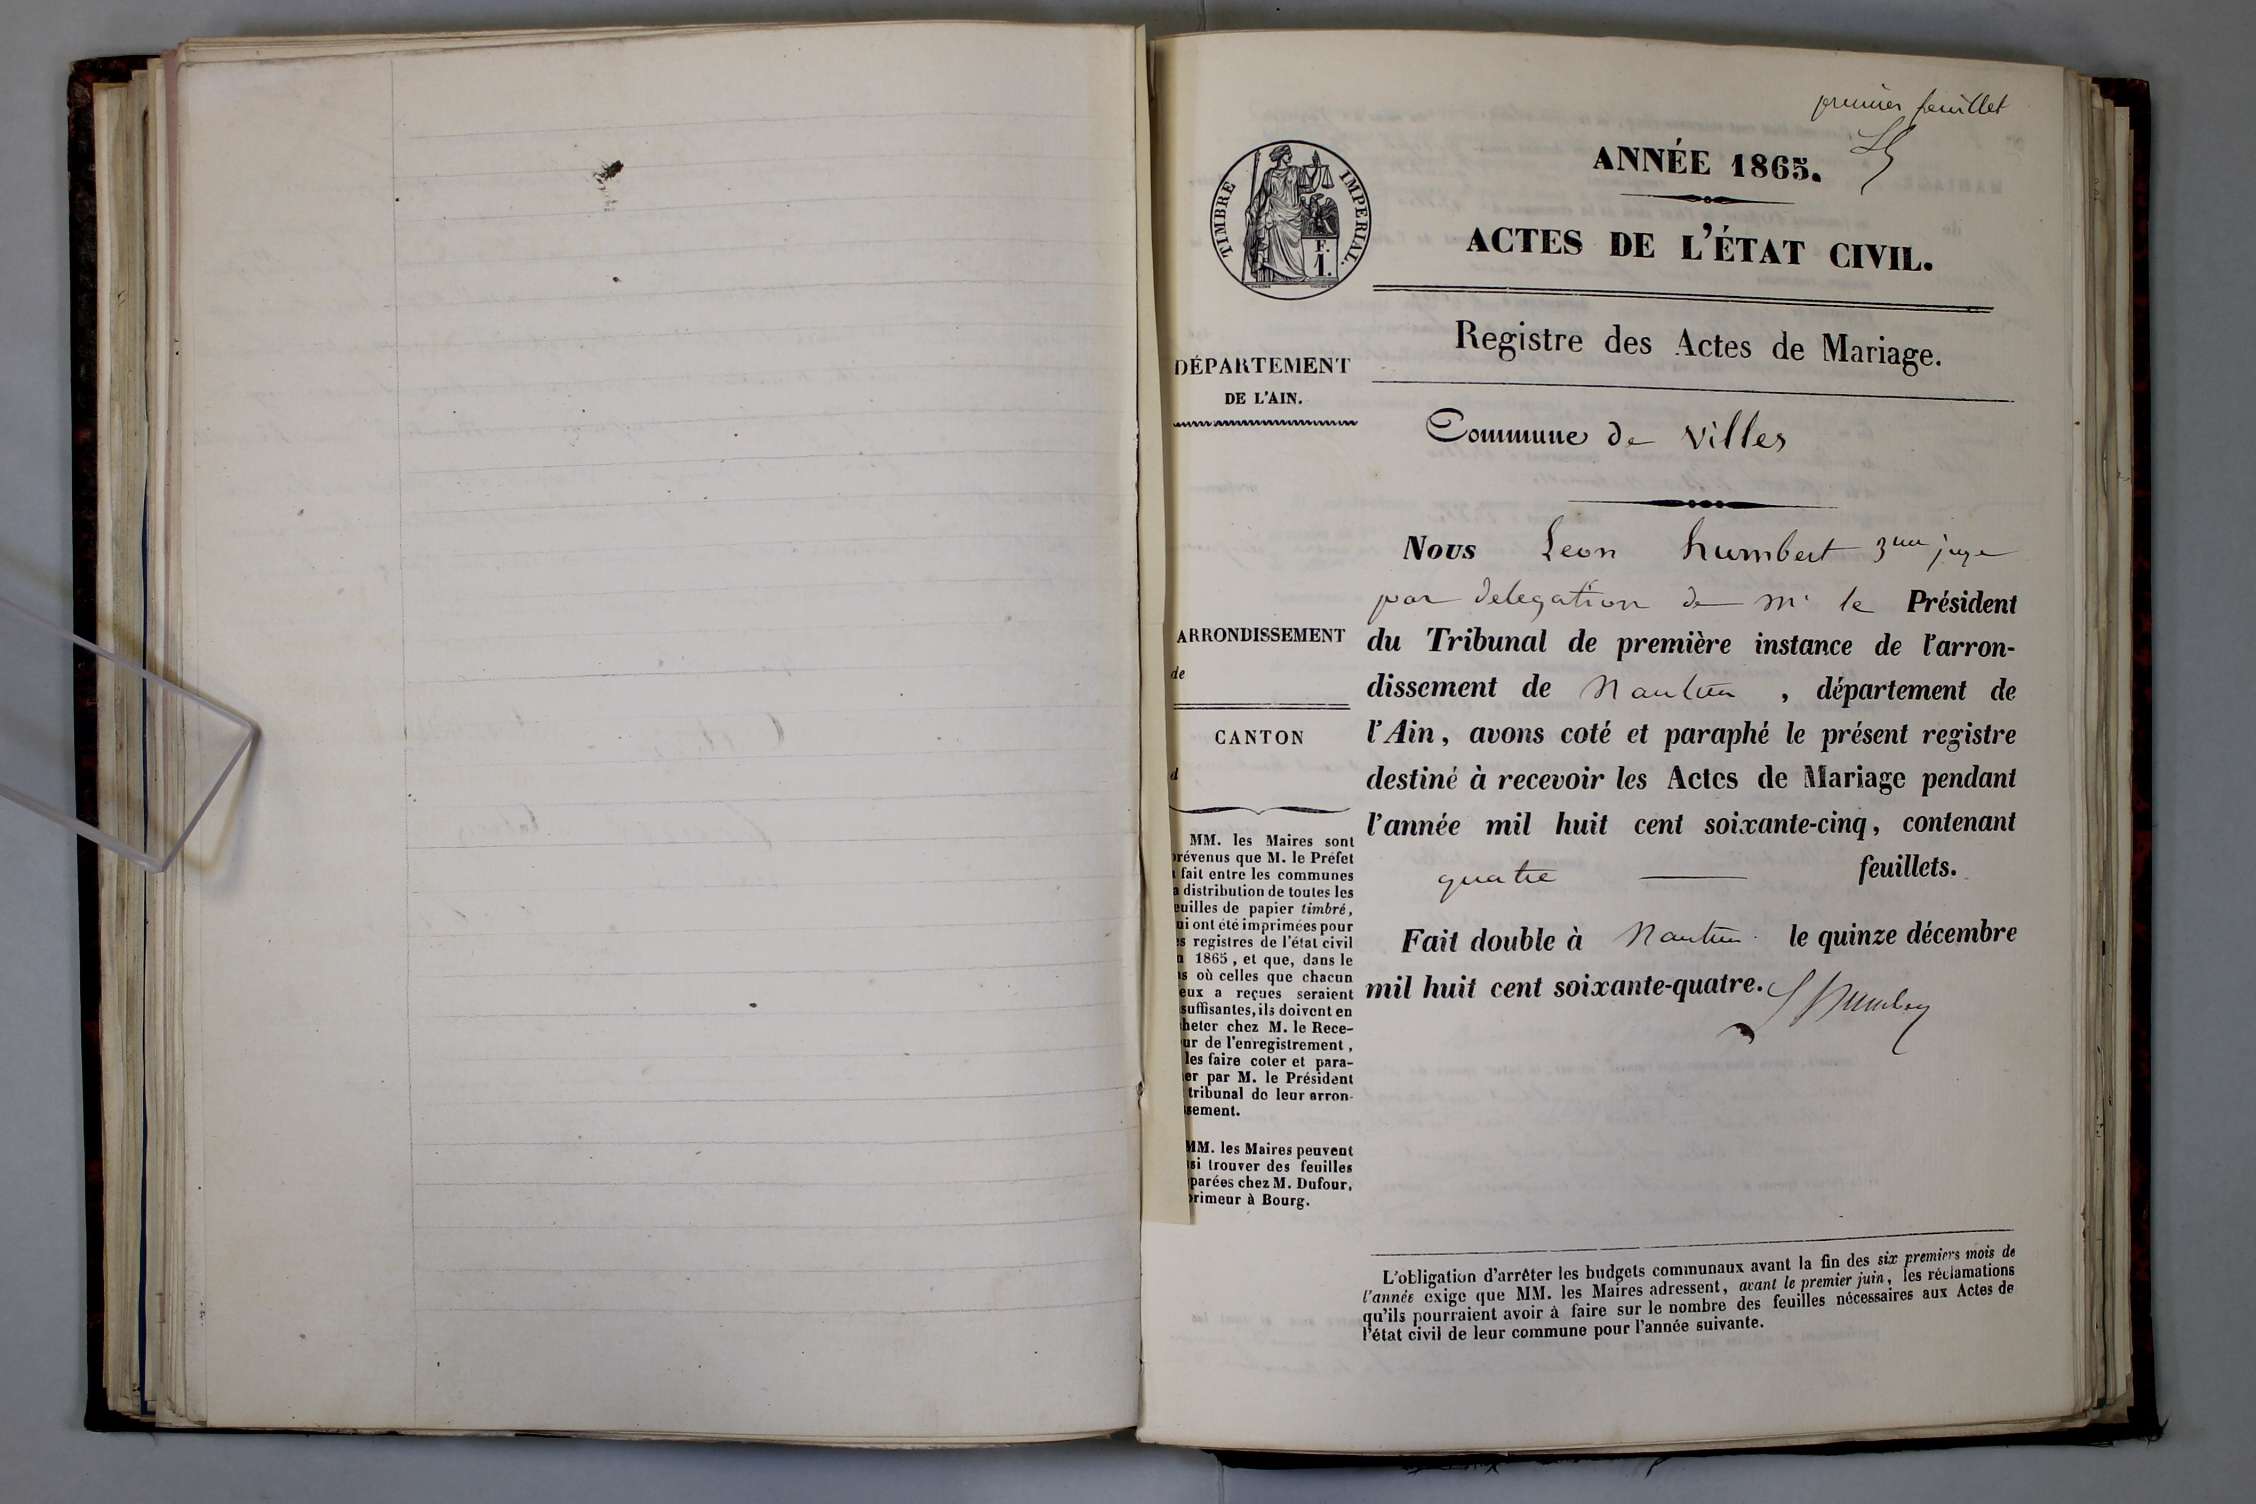 premier feuillet
ANNÉE 1865.
TIMBRE IMPERIAL.
F.
1.
ACTES DE L'ÉTAT CIVIL.
Registre des Actes de Mariage.
DÉPARTEMENT
DE L'AIN.
Commune de Villes
Nous Leon humbert 3me juge
par delegation de Mr le Président
du Tribunal de première instance de l'arron-
dissement de Nantua , département de
l'Ain, avons coté et paraphé le présent registre
destiné à recevoir les Actes de Mariage pendant
l'année mil huit cent soixante-cinq, contenant
quatre feuillets.
Fait double à Nantua le quinze décembre
mil huit cent soixante-quatre.
L Humbert
ARRONDISSEMENT
de
CANTON
d
MM. les Maires sont
révenus que M. le Préfet
fait entre les communes
a distribution de toutes les
euilles de papier timbré,
ui ont été imprimées pour
es registres de l'état civil
n 1865, et que, dans le
as où celles que chacun
eux a reçues seraient
suffisantes, ils doivent en
heter chez M. le Rece-
ur de l'enregistrement,
les faire coter et para-
er par M. le Président
tribunal de leur arron-
sement.
MM. les Maires peuvent
si trouver des feuilles
parées chez M. Dufour,
primeur à Bourg.
L'obligation d'arrêter les budgets communaux avant la fin des six premiers mois de
l'année exige que MM. les Maires adressent, avant le premier juin, les réclamations
qu'ils pourraient avoir à faire sur le nombre des feuilles nécessaires aux Actes de
l'état civil de leur commune pour l'année suivante.